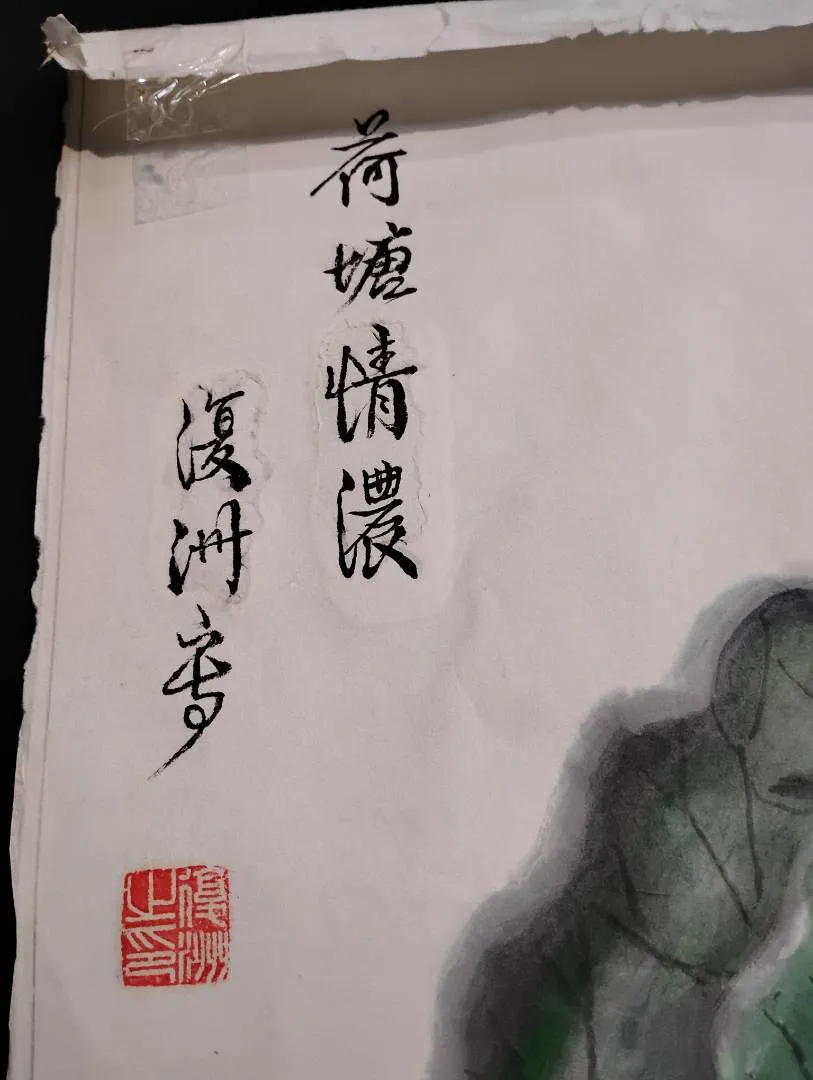 荷塘情濃
復洲寫
復洲之印